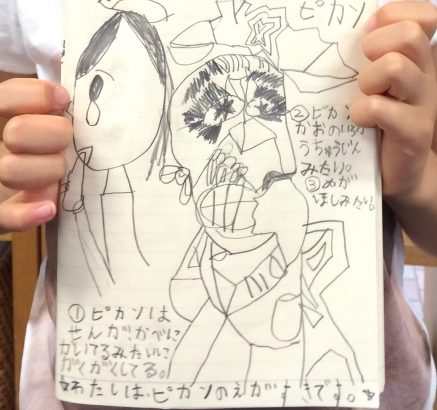 ピカソ
②ピカソ
かおのいろが
うちゅうじん
みたい。
③めが
ほしみたい。
①ピカソは
せんが、かべに
かいてるみたいに
がくがくしてる。
☆わたしは、ピカソのえがすきです。☆